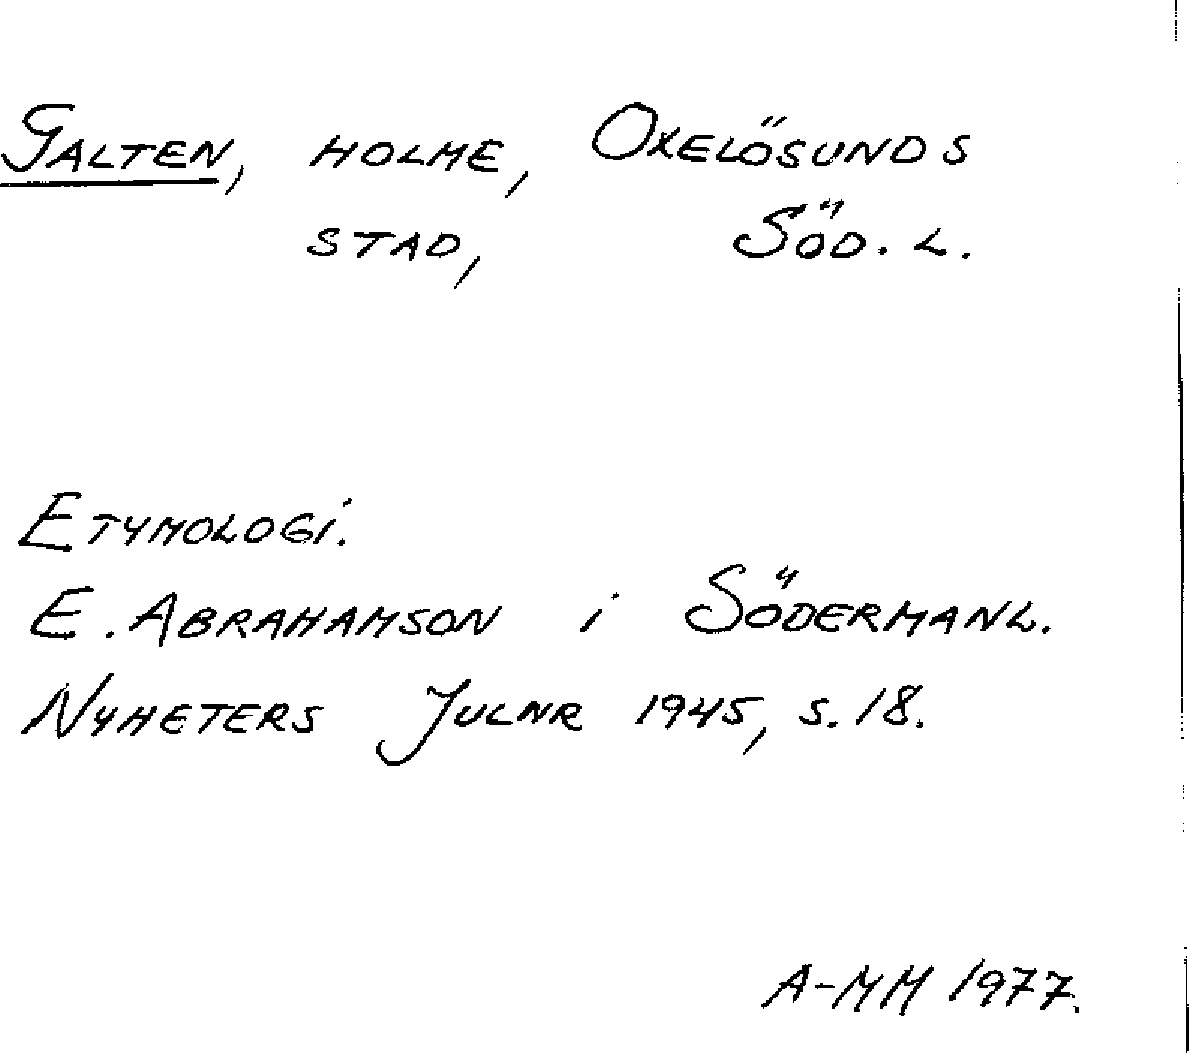 GALTEN, HOLME, OXELÖSUNDS
STAD, SÖD. L.
ETYMOLOGI.
E. ABRAHAMSON i SÖDERMANL.
NYHETERS JULNR 1945, S. 18.
A-MM 1977.